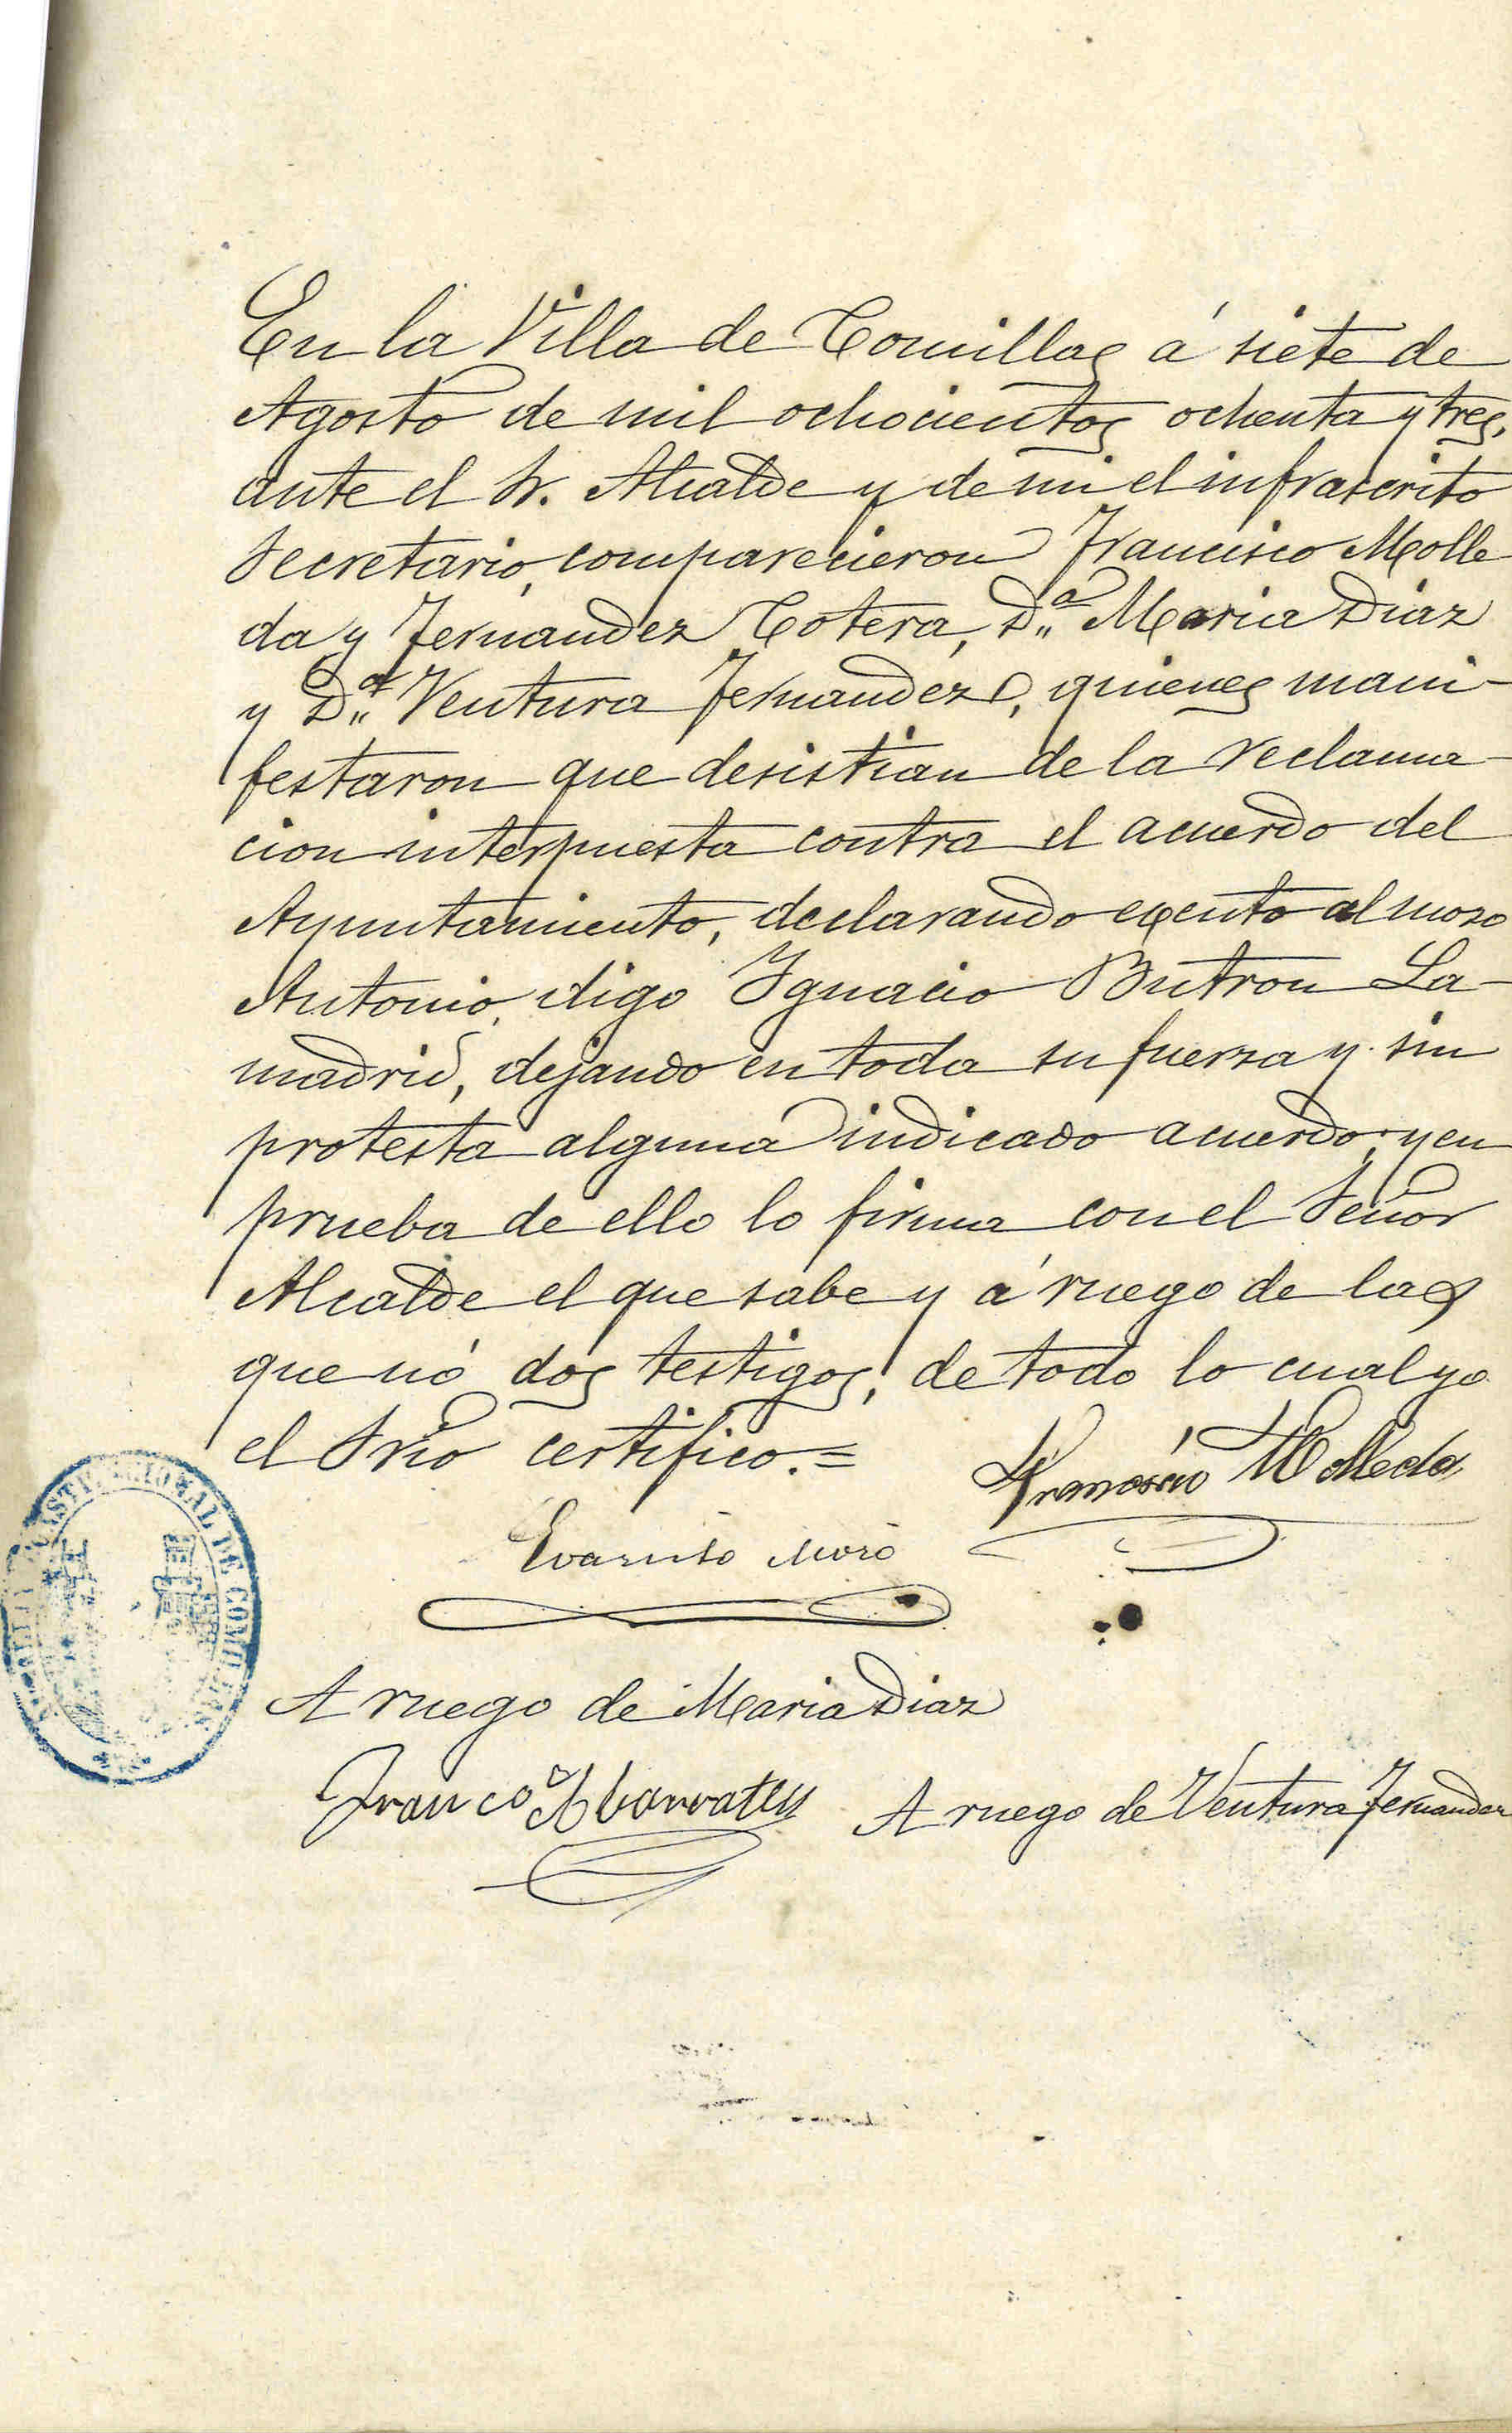 En la Villa de Comillas á siete de
Agosto de mil ochocientos ochenta y tres,
ante el Sr. Alcalde y de mi el infrascrito
Secretario, comparecieron Francisco Molle
da y Fernandez Cotera, D.ª Maria Diaz
y D.ª Ventura Fernandez, quienes mani-
festaron que desistian de la reclama-
cion interpuesta contra el acuerdo del
Ayuntamiento, declarando exento al mozo
Antonio, digo Ignacio Butron La-
madrid, dejando en toda su fuerza y sin
protesta alguna indicado acuerdo; y en
prueba de ello lo firma con el Señor
Alcalde el que sabe y á ruego de las
que nó dos testigos, de todo lo cual yo
el Srio certifico.=
Francisco Molleda
Evaristo Moro
A ruego de Maria Diaz
Franco
A ruego de Ventura Fernandez
CONSTITUCIONAL DE COMILLAS